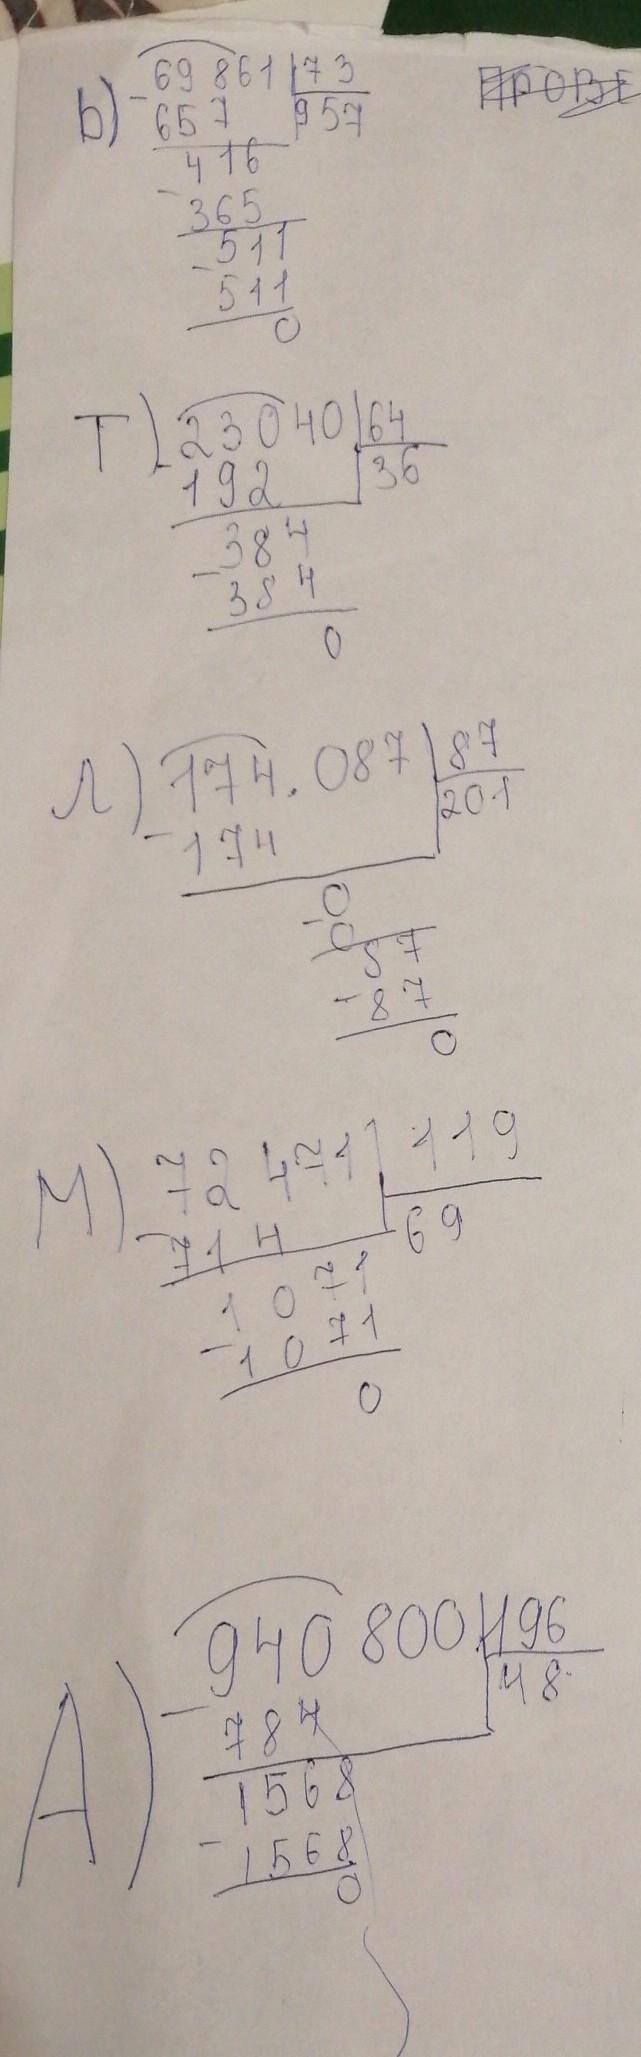 Ь) 69861 73
- 657 957
416
- 365
511
- 511
0
Т) 23040 64
- 192 36
384
- 384
0
Л) 174.087 87
- 174 201
0
- 0
87
- 87
0
М) 72471 119
- 714 69
1071
- 1071
0
А) 940800 196
- 784 48
1568
- 1568
0